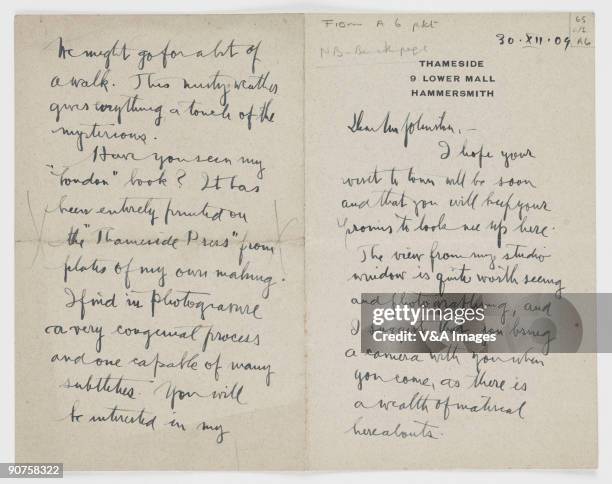 From A 6 pkt
65
A6
30. XII. 09
THAMESIDE
9 LOWER MALL
HAMMERSMITH
Dear Mr Johnston,-
I hope your
visit to town will be soon
and that you will keep your
promis to look me up here.
The view from my studio
window is quite worth seeing
and photographing, and
I suggest that you bring
a camera with you when
you come, as there is
a wealth of material
hereabouts.
We might go for a bit of
a walk. This misty weather
gives everything a touch of the
mysterious.
Have you seen my
"London" book? It has
been entirely printed on
the "Thameside Press" from
plates of my own making.
I find in photogravure
a very congenial process
and one capable of many
subtleties. You will
be interested in my
gettyimages
Credit: V&A Images
90758322